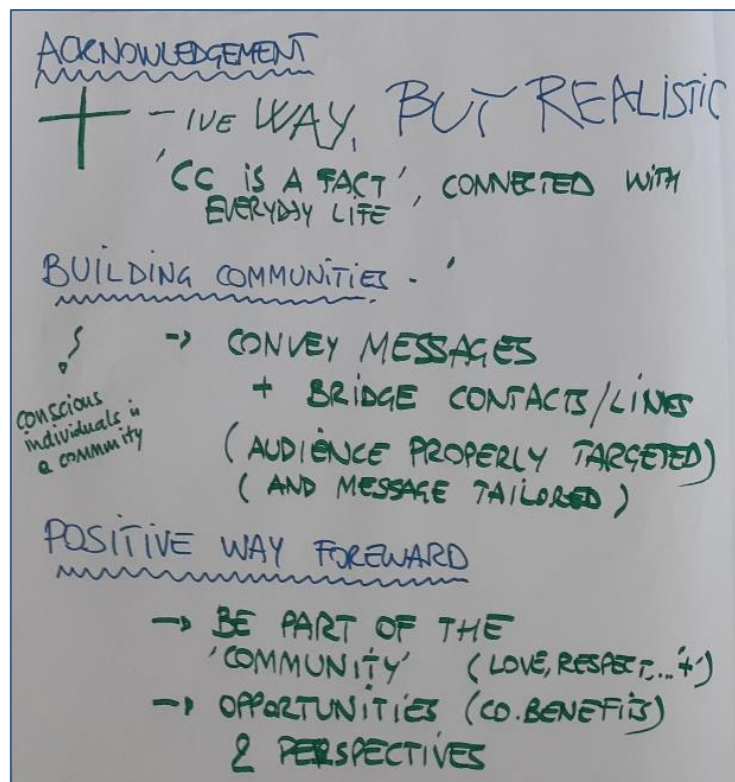 ACKNOWLEDGEMENT
+ -IVE WAY, BUT REALISTIC
'CC IS A FACT', CONNECTED WITH
EVERYDAY LIFE
BUILDING COMMUNITIES
-> CONVEY MESSAGES
+ BRIDGE CONTACTS/LINKS
(AUDIENCE PROPERLY TARGETED)
(AND MESSAGE TAILORED)
conscious
individuals in
a commuity
POSITIVE WAY FOREWARD
-> BE PART OF THE
'COMMUNITY' (LOVE, RESPECT,... '+')
-> OPPORTUNITIES (CO.BENEFITS)
& PERSPECTIVES